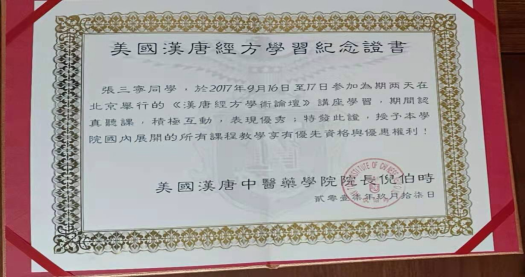 美國漢唐經方學習紀念證書
張三寨同學，於2017年9月16日至17日參加為期两天在
北京舉行的《漢唐經方學術論壇》講座學習，期間認
真聽課，積極互動，表現優秀；特發此證，授予本學
院國內展開的所有課程教學享有優先資格與優惠權利！
美國漢唐中醫藥學院院長倪伯時
貳零壹柒年玖月拾柒日